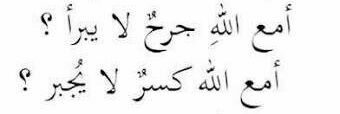 أمع اللهِ جرحٌ لا يبرأ ؟
أمع الله كسرٌ لا يُجبر ؟